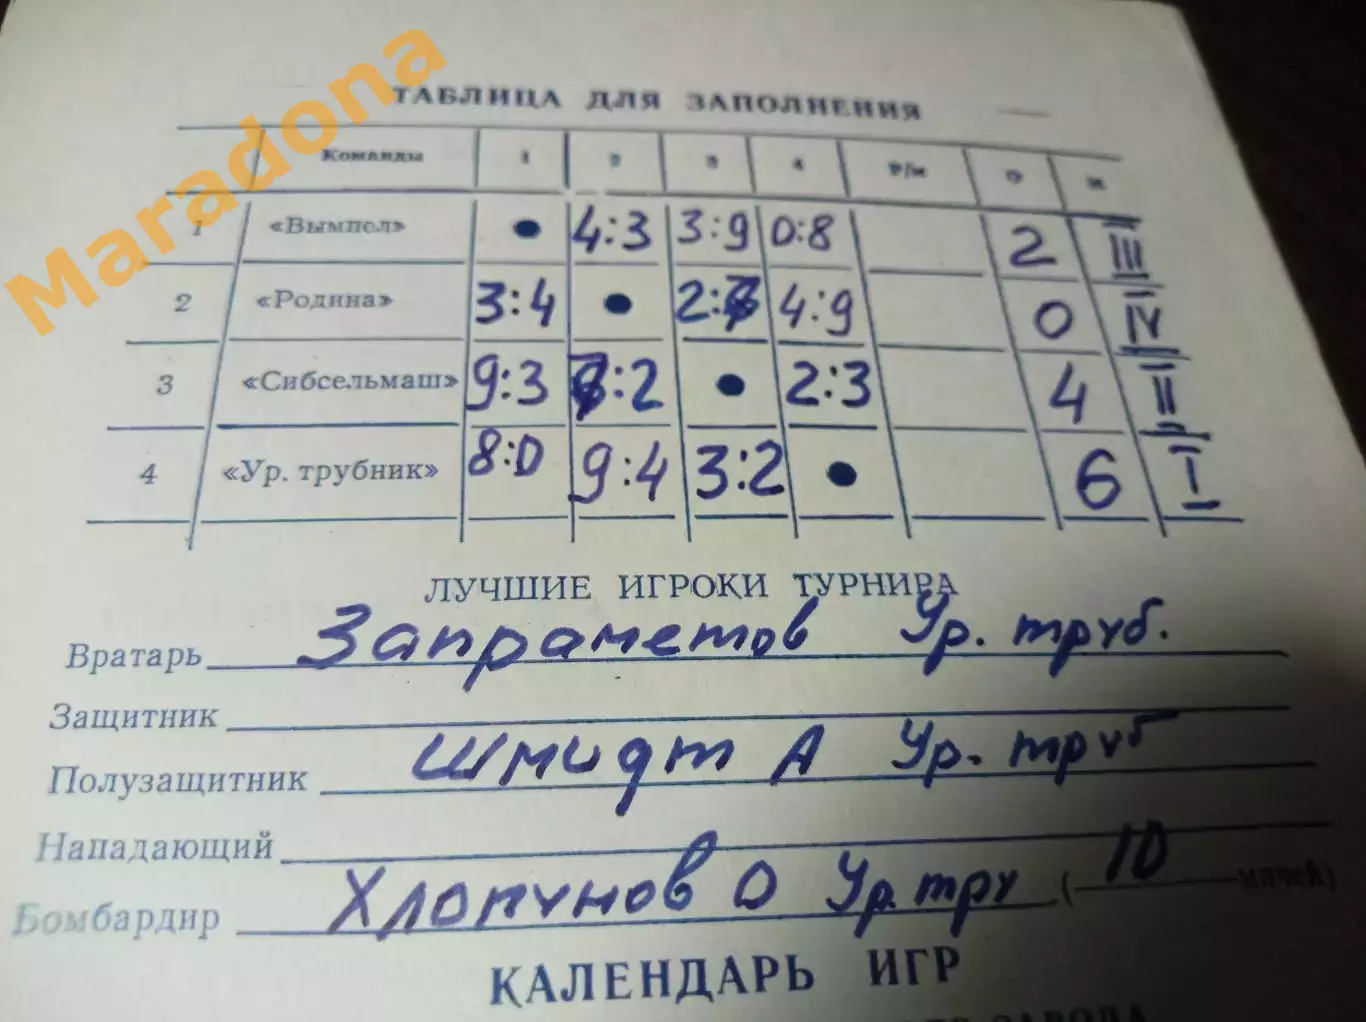 Maradona
ТАБЛИЦА ДЛЯ ЗАПОЛНЕНИЯ
Команды 1 2 3 4 Р/м О М
1 «Вымпел» ● 4:3 3:9 0:8 2 III
2 «Родина» 3:4 ● 2:7 4:9 0 IV
3 «Сибсельмаш» 9:3 7:2 ● 2:3 4 II
4 «Ур. трубник» 8:0 9:4 3:2 ● 6 I
ЛУЧШИЕ ИГРОКИ ТУРНИРА
Вратарь Запраметов Ур. труб.
Защитник
Полузащитник Шмидт А Ур. труб
Нападающий
Бомбардир Хлопунов О Ур. тру (10 мячей)
КАЛЕНДАРЬ ИГР
ЗАВОДА